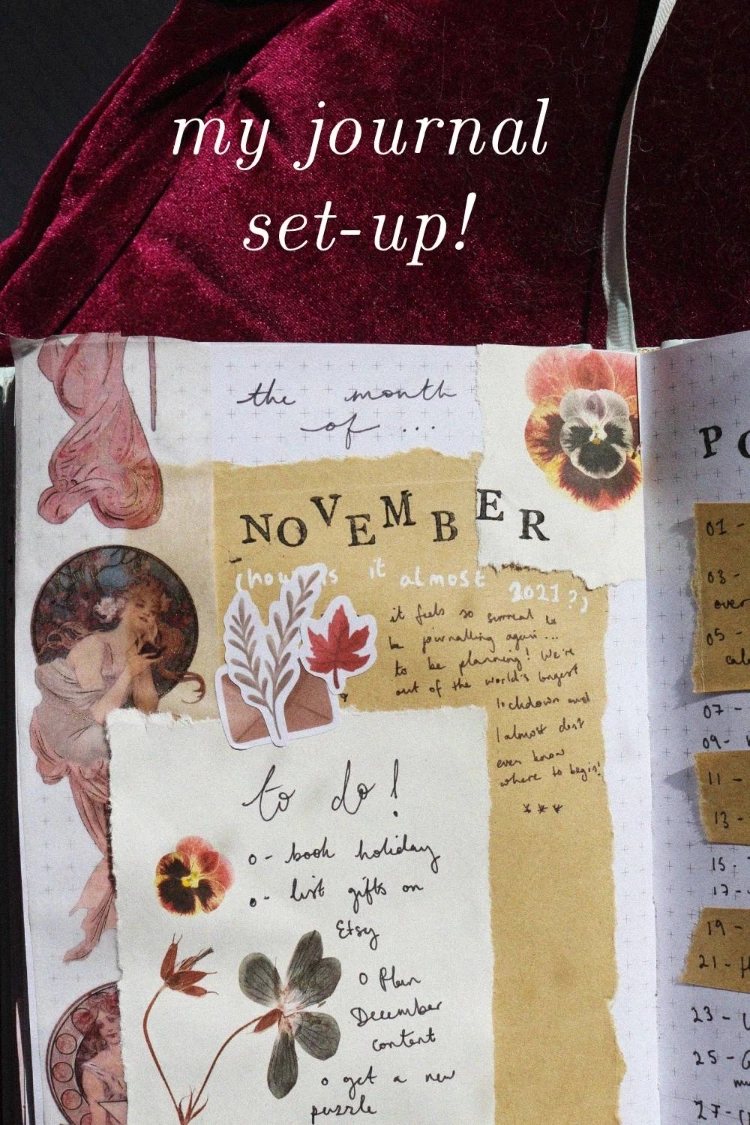 my journal
set-up!
the month
of ...
NOVEMBER
(how is it almost 2021?)
it feels so surreal to
be journalling again...
to be planning! We're
out of the world's longest
lockdown and
I almost don't
even know
where to begin!
***
to do!
o - book holiday
o - list gifts on
Etsy
o Plan
December
content
o get a new
puzzle
PO
01 -
03 -
over
05 -
07 -
09 -
11 -
13 -
15 -
17 -
19 -
21 -
23 -
25 -
27 -